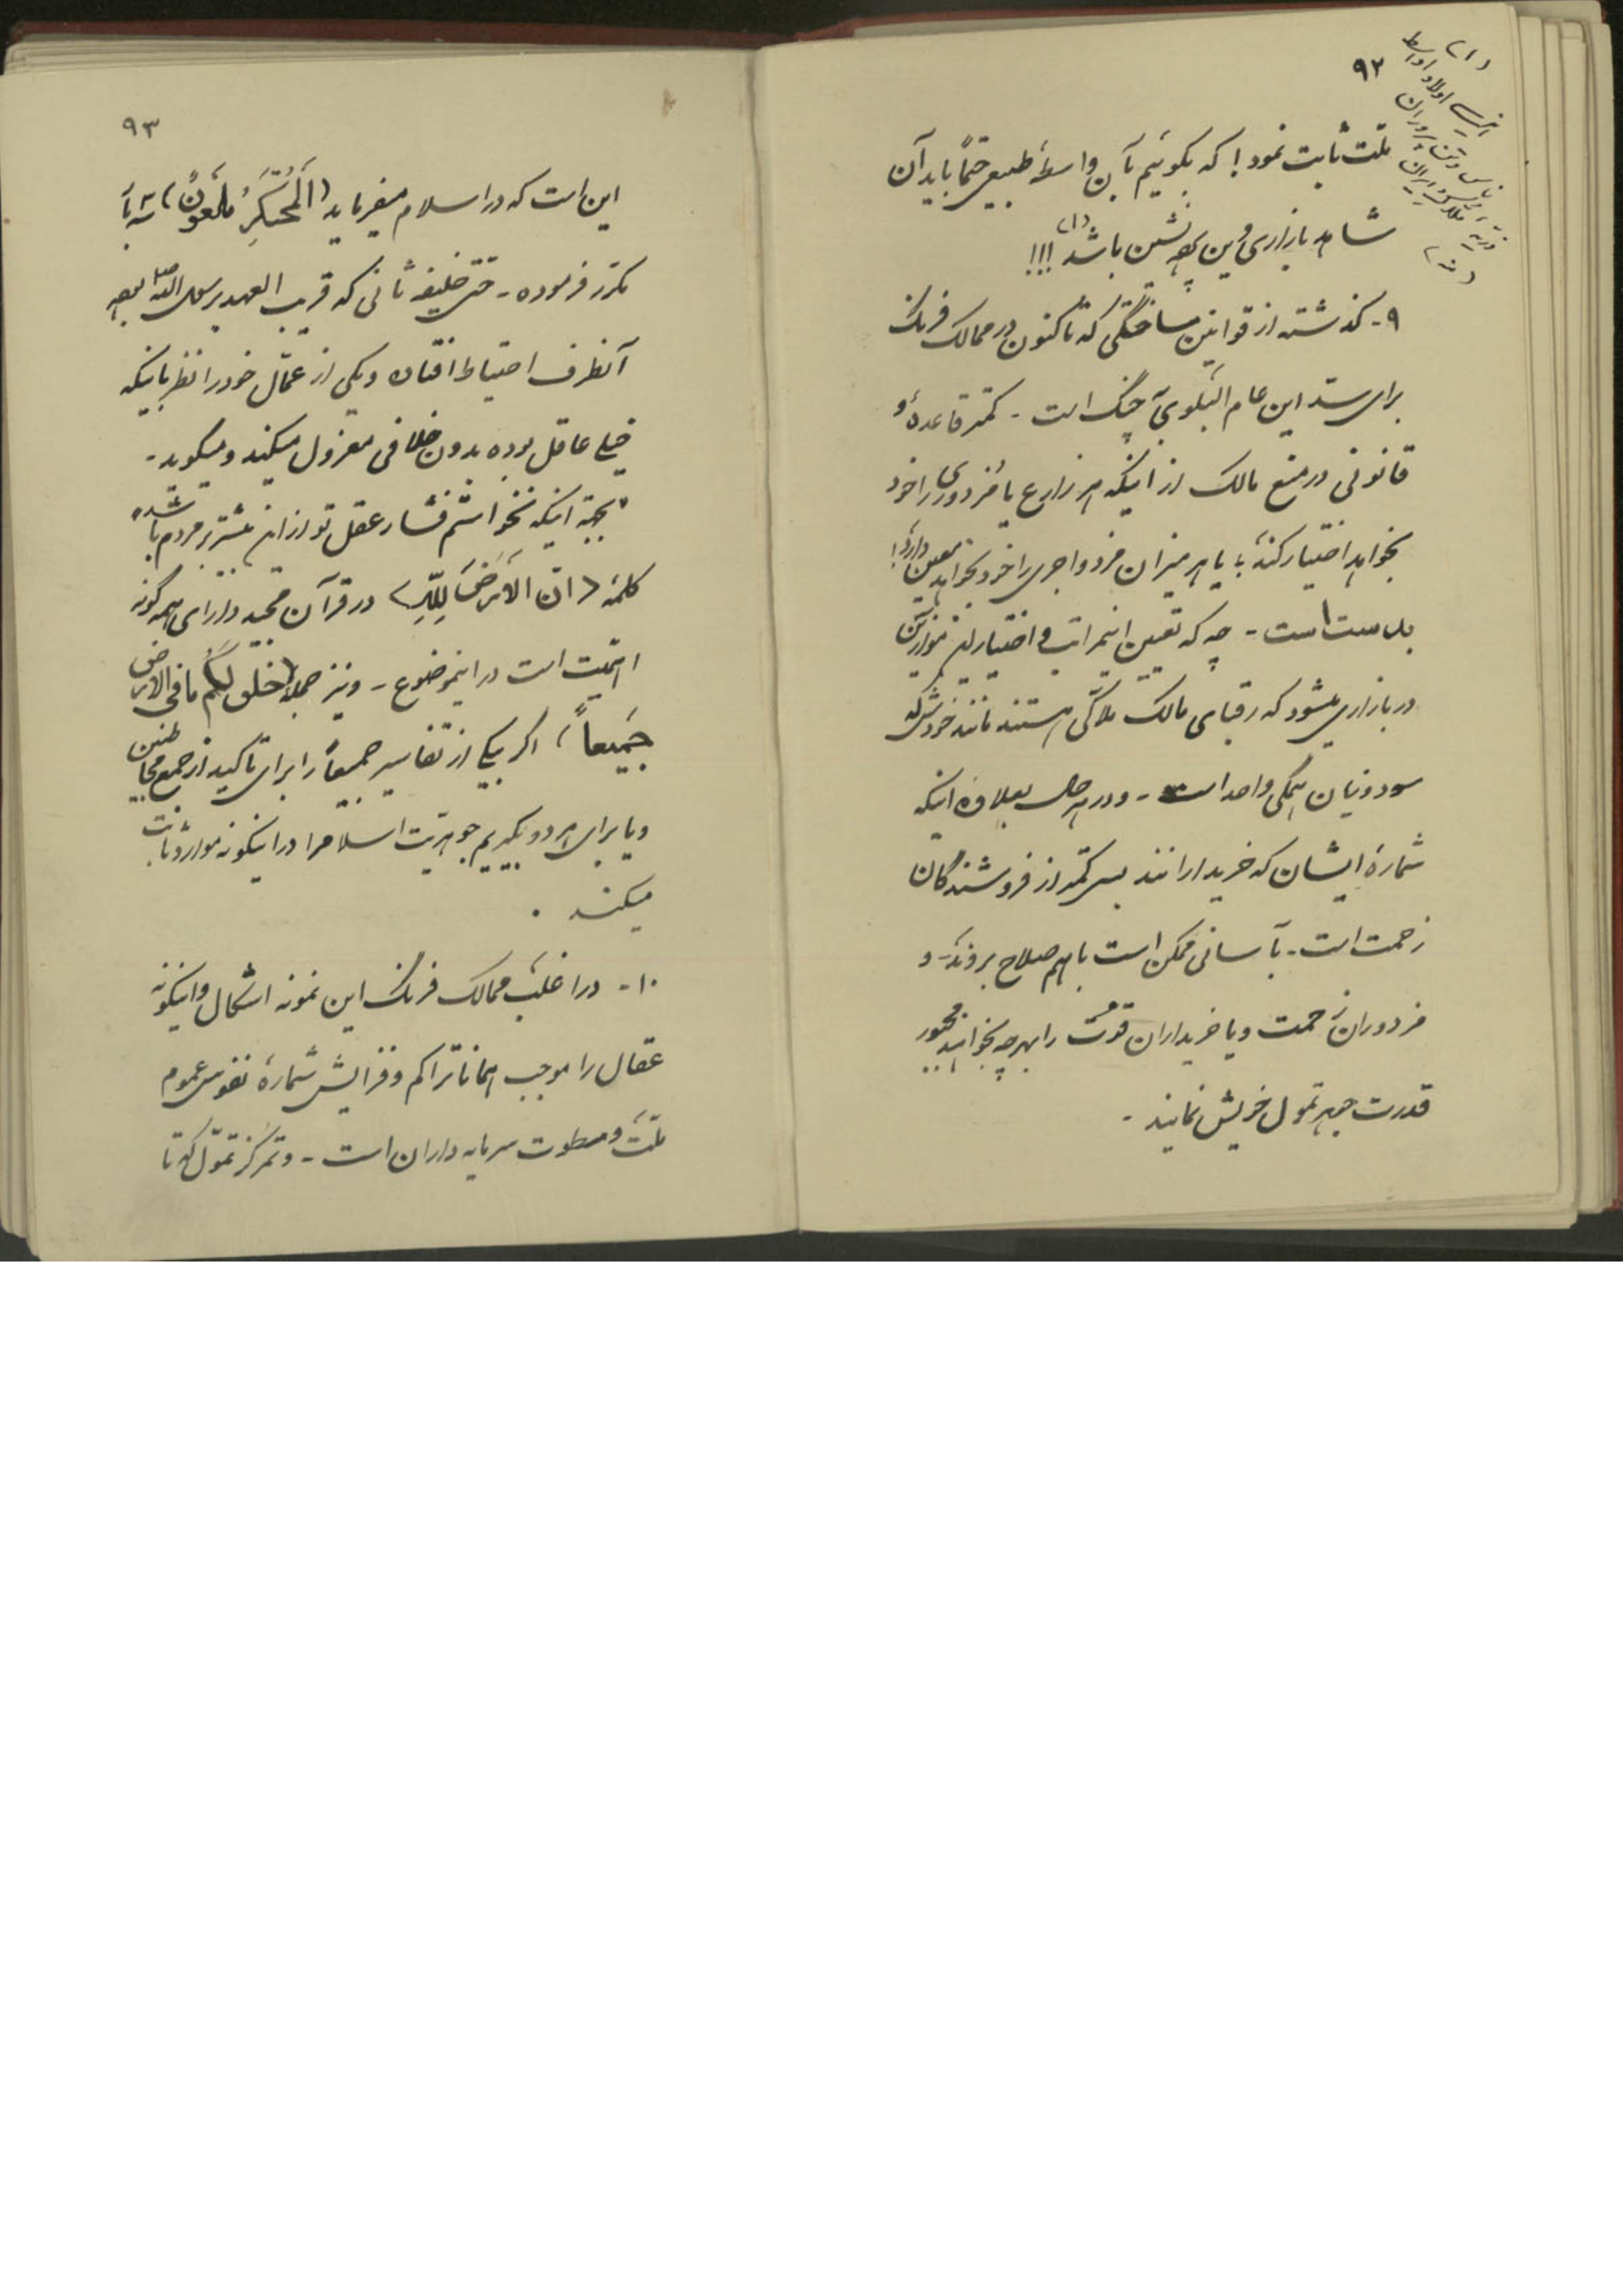 ۹۲
(۱)
ملت ثابت نمود! که بگوئیم آن واسطهٔ طبیعی حتماً باید آن
شاهد بازاری وین پرده نشین باشد (۱) !!!
۹- گذشته از قوانین ساختگی که تاکنون در ممالک فرنگ
برای سد این عام البلوی جنگ است - کمتر قاعدهٔ و
قانونی در منع مالک از اینکه هر زارع یا مزدوری را خود
بخواهد اختیار کند؛ یا بهر میزان مزد و اجری را خود بخواهد معین دارد؛
بدست است - چه که تعیین اینمراتب و اختیار این موازین
در بازاری میشود که رقبای مالک ملاکی هستند مانند خودش که
سود و زیان همگی واحد است - و در هر حال بعلاوه اینکه
شمارهٔ ایشان که خریدارانند بس کمتر از فروشندگان
زحمت است - بآسانی ممکن است باهم صلاح بروند - و
مزدوران زحمت و یا خریداران قوت را بهرچه بخواهند مجبور
قدرت جبر تمول خویش نمایند -
۹۳
این است که در اسلام میفرماید (اَلمُحتَکِرُ مَلعُونٌ)
مکرر فرموده - حتی خلیفه ثانی که قریب العهد برسول الله بوده
آنطرف احتیاط افتاده و یکی از عمّال خود را نظر باینکه
خیلی عاقل بوده بدون خلافی معزول میکند و میگوید -
"بجهة اینکه نخواستم فشار عقل تو از این بیشتر بر مردم باشد"
کلمهٔ (انّ الاَرضَ لِلّهِ) در قرآن مجید دارای همه گونه
اهمیت است در اینموضوع - و نیز جملهٔ (خلق لَکُم ما فی الارض
جَمیعاً) اگر یکی از تفاسیر جمیعاً را برای تأکید از جمع مخاطبین
و یا برای هر دو بگیریم جوهریت اسلام را در اینگونه موارد ثابت
میکند .
۱۰- در اغلب ممالک فرنگ این نمونه اشکال و اینگونه
عقال را موجب همانا تراکم و فزایش شمارهٔ نفوس عموم
ملت و سطوت سرمایه داران است - و تمرکز تموّل که تا